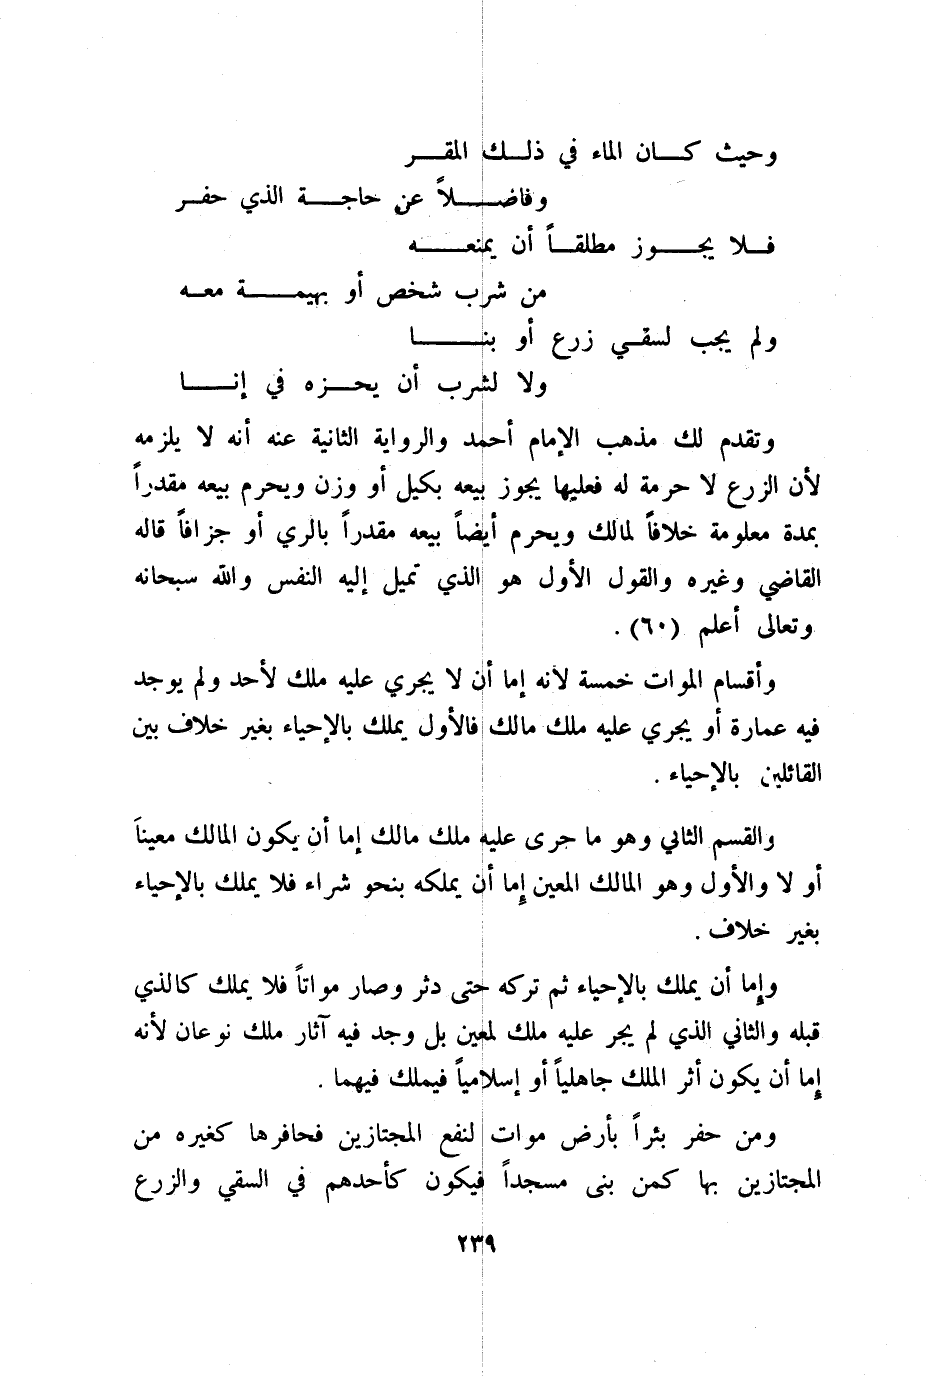 وحيث كان الماء في ذلك المقر
وفاضلاً عن حاجة الذي حفر
فلا يجوز مطلقاً أن يمنعه
من شرب شخص أو بهيمة معه
ولم يجب لسقي زرع أو بنا
ولا لشرب أن يحزه في إنا
وتقدم لك مذهب الإمام أحمد والرواية الثانية عنه أنه لا يلزمه
لأن الزرع لا حرمة له فعليها يجوز بيعه بكيل أو وزن ويحرم بيعه مقدراً
بمدة معلومة خلافاً لمالك ويحرم أيضاً بيعه مقدراً بالري أو جزافاً قاله
القاضي وغيره والقول الأول هو الذي تميل إليه النفس والله سبحانه
وتعالى أعلم (٦٠) .
وأقسام الموات خمسة لأنه إما أن لا يجري عليه ملك لأحد ولم يوجد
فيه عمارة أو يجري عليه ملك مالك فالأول يملك بالإحياء بغير خلاف بين
القائلين بالإحياء .
والقسم الثاني وهو ما جرى عليه ملك مالك إما أن يكون المالك معيناً
أو لا والأول وهو المالك المعين إما أن يملكه بنحو شراء فلا يملك بالإحياء
بغير خلاف .
وإما أن يملك بالإحياء ثم تركه حتى دثر وصار مواتاً فلا يملك كالذي
قبله والثاني الذي لم يجر عليه ملك لمعين بل وجد فيه آثار ملك نوعان لأنه
إما أن يكون أثر الملك جاهلياً أو إسلامياً فيملك فيهما .
ومن حفر بئراً بأرض موات لنفع المجتازين فحافرها كغيره من
المجتازين بها كمن بنى مسجداً فيكون كأحدهم في السقي والزرع
٢٣٩